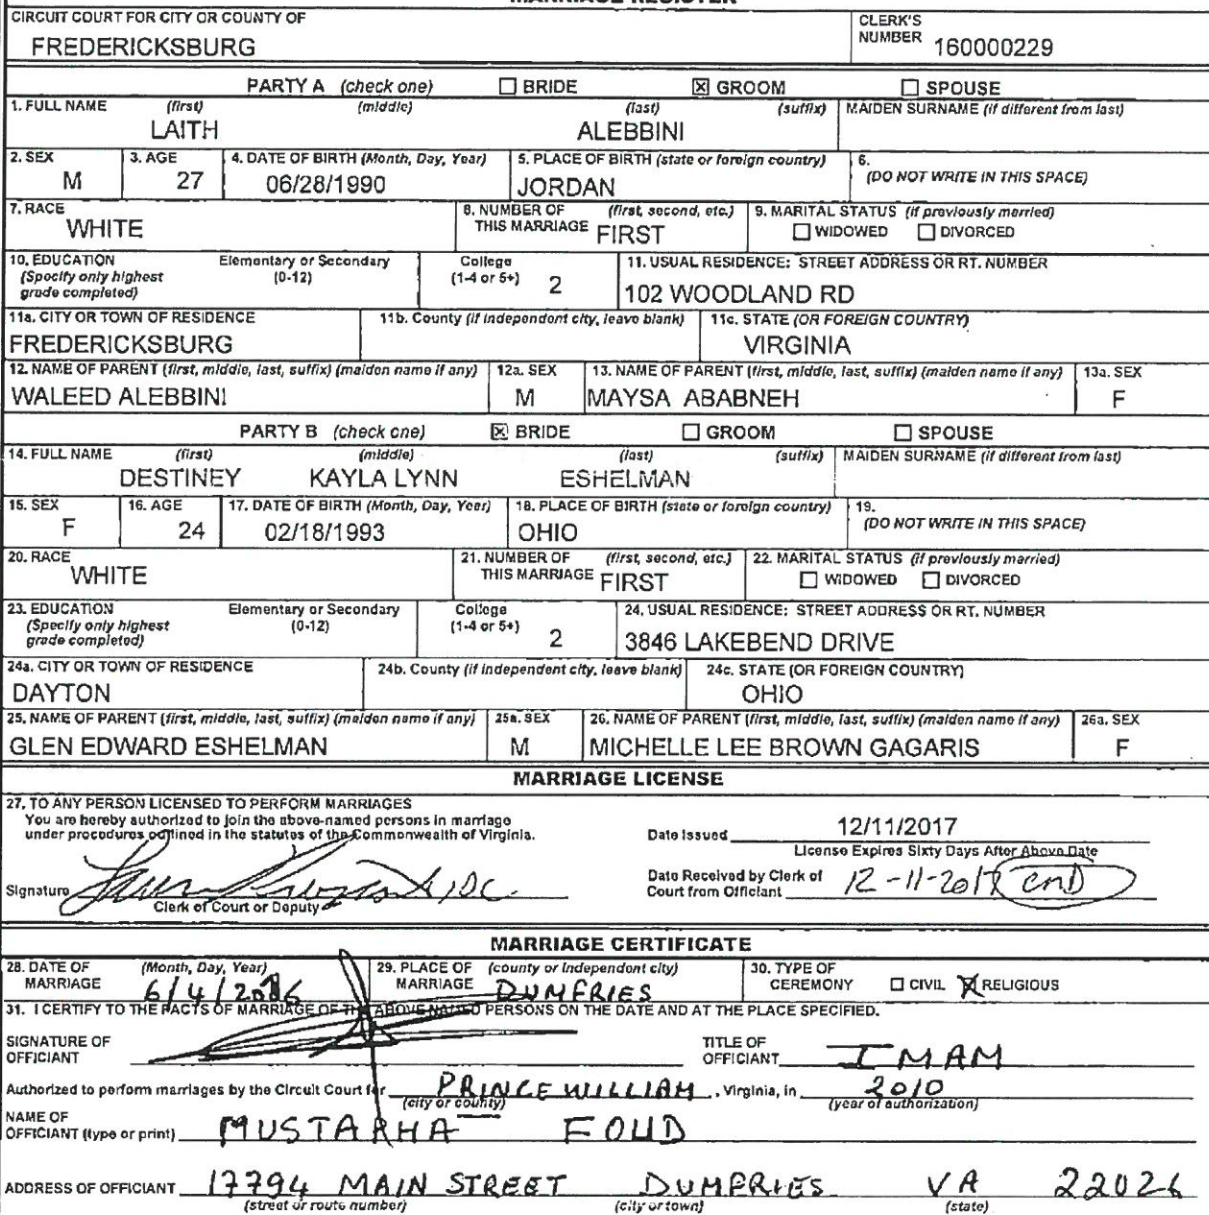 MARRIAGE REGISTER
CIRCUIT COURT FOR CITY OR COUNTY OF
FREDERICKSBURG
CLERK'S NUMBER 160000229
PARTY A (check one) ☐ BRIDE ☒ GROOM ☐ SPOUSE
1. FULL NAME (first) (middle) (last) (suffix) MAIDEN SURNAME (if different from last)
LAITH ALEBBINI
2. SEX 3. AGE 4. DATE OF BIRTH (Month, Day, Year) 5. PLACE OF BIRTH (state or foreign country) 6. (DO NOT WRITE IN THIS SPACE)
M 27 06/28/1990 JORDAN
7. RACE 8. NUMBER OF THIS MARRIAGE (first, second, etc.) 9. MARITAL STATUS (if previously married)
WHITE FIRST ☐ WIDOWED ☐ DIVORCED
10. EDUCATION (Specify only highest grade completed) Elementary or Secondary (0-12) College (1-4 or 5+) 11. USUAL RESIDENCE: STREET ADDRESS OR RT. NUMBER
2 102 WOODLAND RD
11a. CITY OR TOWN OF RESIDENCE 11b. County (if independent city, leave blank) 11c. STATE (OR FOREIGN COUNTRY)
FREDERICKSBURG VIRGINIA
12. NAME OF PARENT (first, middle, last, suffix) (maiden name if any) 12a. SEX 13. NAME OF PARENT (first, middle, last, suffix) (maiden name if any) 13a. SEX
WALEED ALEBBINI M MAYSA ABABNEH F
PARTY B (check one) ☒ BRIDE ☐ GROOM ☐ SPOUSE
14. FULL NAME (first) (middle) (last) (suffix) MAIDEN SURNAME (if different from last)
DESTINEY KAYLA LYNN ESHELMAN
15. SEX 16. AGE 17. DATE OF BIRTH (Month, Day, Year) 18. PLACE OF BIRTH (state or foreign country) 19. (DO NOT WRITE IN THIS SPACE)
F 24 02/18/1993 OHIO
20. RACE 21. NUMBER OF THIS MARRIAGE (first, second, etc.) 22. MARITAL STATUS (if previously married)
WHITE FIRST ☐ WIDOWED ☐ DIVORCED
23. EDUCATION (Specify only highest grade completed) Elementary or Secondary (0-12) College (1-4 or 5+) 24. USUAL RESIDENCE: STREET ADDRESS OR RT. NUMBER
2 3846 LAKEBEND DRIVE
24a. CITY OR TOWN OF RESIDENCE 24b. County (if independent city, leave blank) 24c. STATE (OR FOREIGN COUNTRY)
DAYTON OHIO
25. NAME OF PARENT (first, middle, last, suffix) (maiden name if any) 25a. SEX 26. NAME OF PARENT (first, middle, last, suffix) (maiden name if any) 26a. SEX
GLEN EDWARD ESHELMAN M MICHELLE LEE BROWN GAGARIS F
MARRIAGE LICENSE
27. TO ANY PERSON LICENSED TO PERFORM MARRIAGES
You are hereby authorized to join the above-named persons in marriage
under procedures outlined in the statutes of the Commonwealth of Virginia.
Date Issued 12/11/2017
License Expires Sixty Days After Above Date
Signature
Clerk of Court or Deputy
Date Received by Clerk of Court from Officiant 12-11-2017
MARRIAGE CERTIFICATE
28. DATE OF MARRIAGE (Month, Day, Year) 29. PLACE OF MARRIAGE (county or independent city) 30. TYPE OF CEREMONY ☐ CIVIL ☒ RELIGIOUS
6/4/2016 DUMFRIES
31. I CERTIFY TO THE FACTS OF MARRIAGE OF THE ABOVE NAMED PERSONS ON THE DATE AND AT THE PLACE SPECIFIED.
SIGNATURE OF OFFICIANT
TITLE OF OFFICIANT IMAM
Authorized to perform marriages by the Circuit Court for PRINCE WILLIAM, Virginia, in 2010
(city or county) (year of authorization)
NAME OF OFFICIANT (type or print) MUSTARHA FOUD
ADDRESS OF OFFICIANT 17794 MAIN STREET DUMFRIES VA 22026
(street or route number) (city or town) (state)